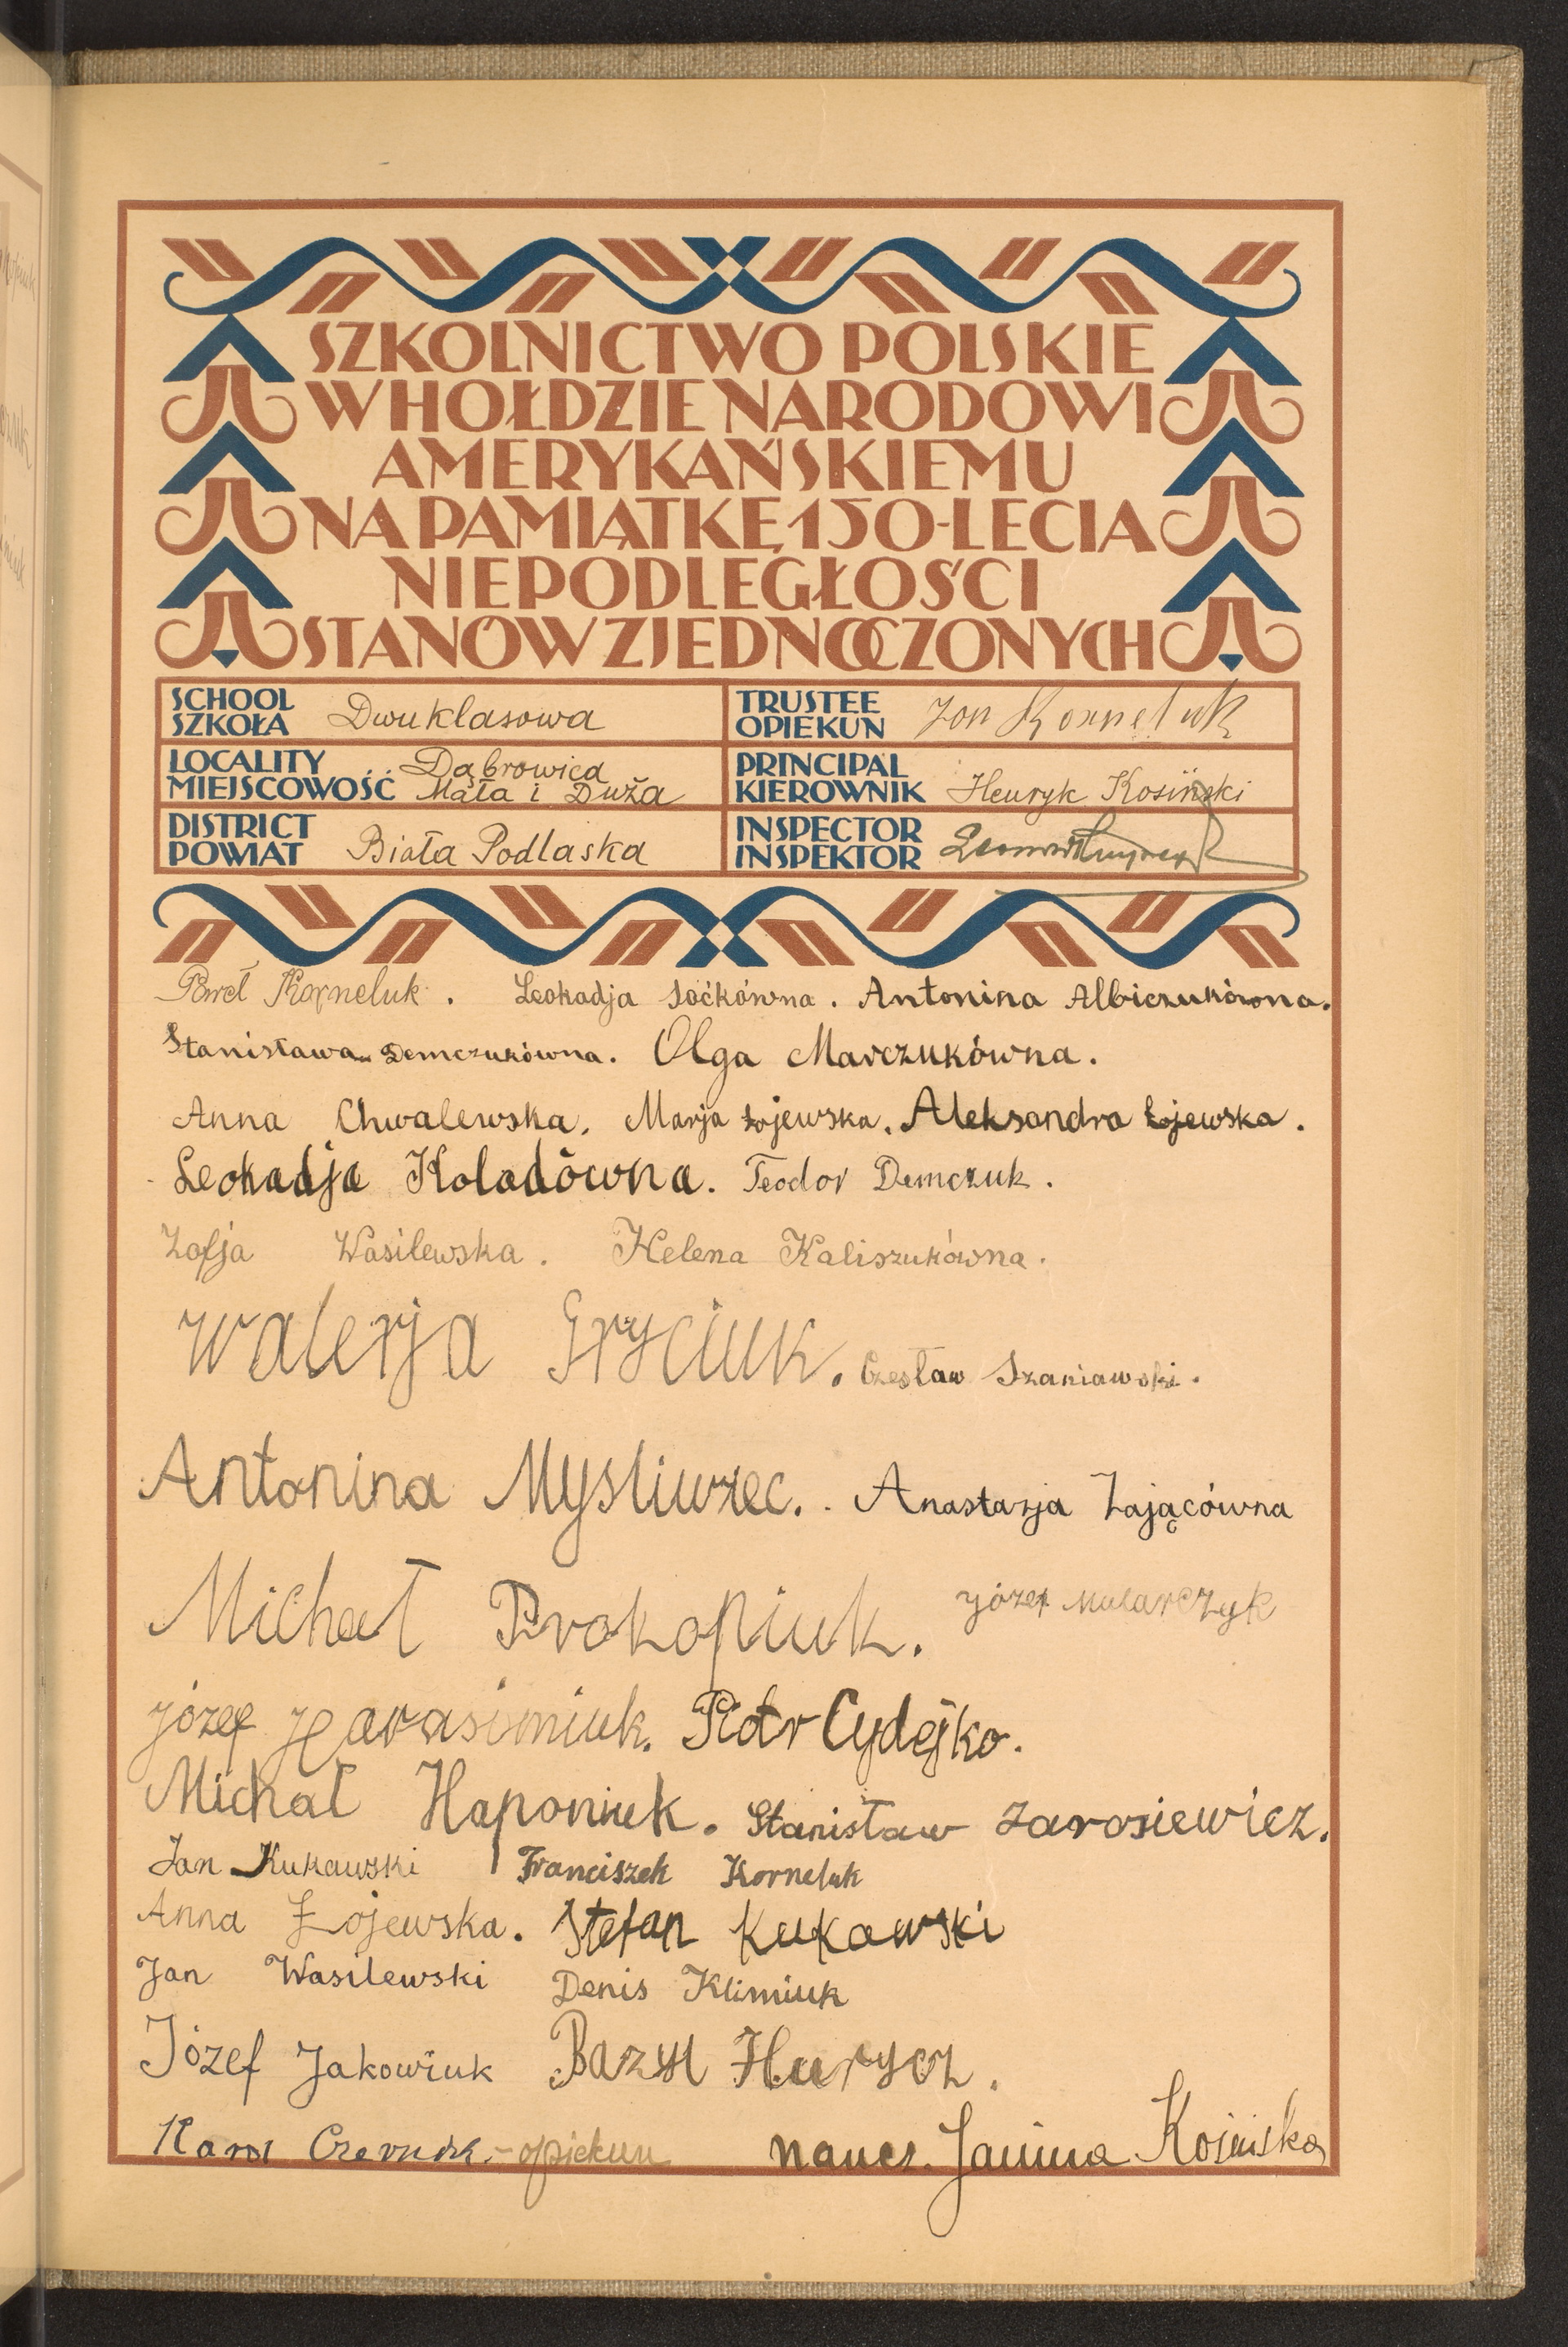 SZKOLNICTWO POLSKIE
W HOŁDZIE NARODOWI
AMERYKAŃSKIEMU
NA PAMIĄTKĘ 150-LECIA
NIEPODLEGŁOŚCI
STANÓW ZJEDNOCZONYCH
SCHOOL
SZKOŁA Dwuklasowa
TRUSTEE
OPIEKUN Jan Korneluk
LOCALITY Dąbrowica
MIEJSCOWOŚĆ Mała i Duża
PRINCIPAL
KIEROWNIK Henryk Kosiński
DISTRICT
POWIAT Biała Podlaska
INSPECTOR
INSPEKTOR
Paweł Korneluk. Leokadja Soćkówna. Antonina Albiczukówna.
Stanisława Demczukówna. Olga Marczukówna.
Anna Chwalewska. Marja Łojewska. Aleksandra Łojewska.
Leokadja Koladówna. Teodor Demczuk.
Zofja Wasilewska. Helena Kaliszukówna.
Walerja Gryciuk. Czesław Szaniawski.
Antonina Mysliwiec. Anastazja Zającówna
Michał Prokopiuk. Józef Malarczyk
Józef Harasimiuk. Piotr Cydejko.
Michał Haponiuk. Stanisław Zarosiewicz.
Jan Kukawski Franciszek Korneluk
Anna Łojewska. Stefan Kukawski
Jan Wasilewski Denis Klimiuk
Józef Jakowiuk Bazyl Hurycz.
Karol - opiekun naucz. Janina Kosińska